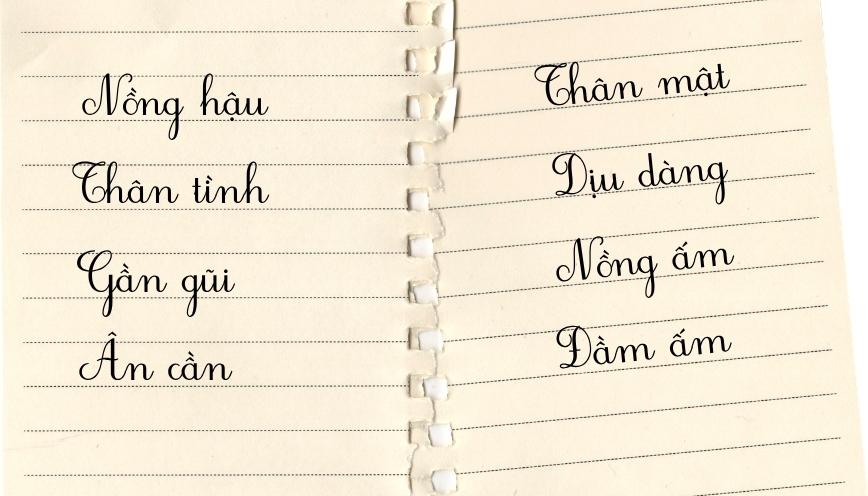 Nồng hậu
Thân tình
Gần gũi
Ân cần
Thân mật
Dịu dàng
Nồng ấm
Đầm ấm